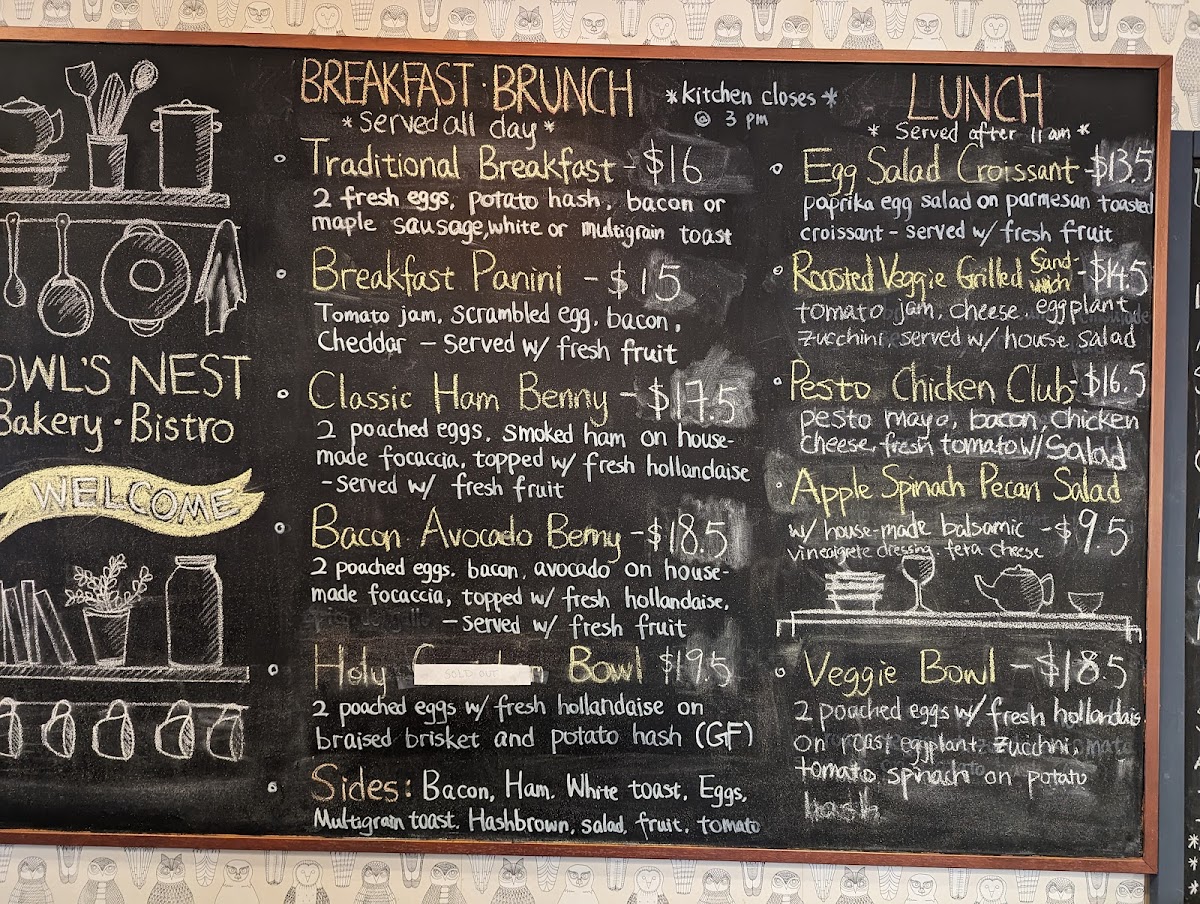 OWL'S NEST
Bakery · Bistro
WELCOME
BREAKFAST · BRUNCH
* Served all day *
*kitchen closes*
@ 3 pm
Traditional Breakfast - $16
2 fresh eggs, potato hash, bacon or
maple sausage, white or multigrain toast
Breakfast Panini - $15
Tomato jam, scrambled egg, bacon,
Cheddar - served w/ fresh fruit
Classic Ham Benny - $17.5
2 poached eggs, smoked ham on house-
made focaccia, topped w/ fresh hollandaise
- served w/ fresh fruit
Bacon Avocado Benny - $18.5
2 poached eggs, bacon, avocado on house-
made focaccia, topped w/ fresh hollandaise,
- served w/ fresh fruit
Holy Bowl $19.5
SOLD OUT
2 poached eggs w/ fresh hollandaise on
braised brisket and potato hash (GF)
Sides: Bacon, Ham, White toast, Eggs,
Multigrain toast, Hashbrown, salad, fruit, tomato
LUNCH
* Served after 11 am *
Egg Salad Croissant - $13.5
paprika egg salad on parmesan toasted
croissant - served w/ fresh fruit
Roasted Veggie Grilled Sand-
wich - $14.5
tomato jam, cheese, eggplant
zucchini, served w/ house salad
Pesto Chicken Club - $16.5
pesto mayo, bacon, chicken
cheese, fresh tomato w/ Salad
Apple Spinach Pecan Salad
w/ house-made balsamic - $9.5
vineaigrete dressing, feta cheese
Veggie Bowl - $18.5
2 poached eggs w/ fresh hollandais
on roast eggplant, zucchni,
tomato spinach on potato
hash